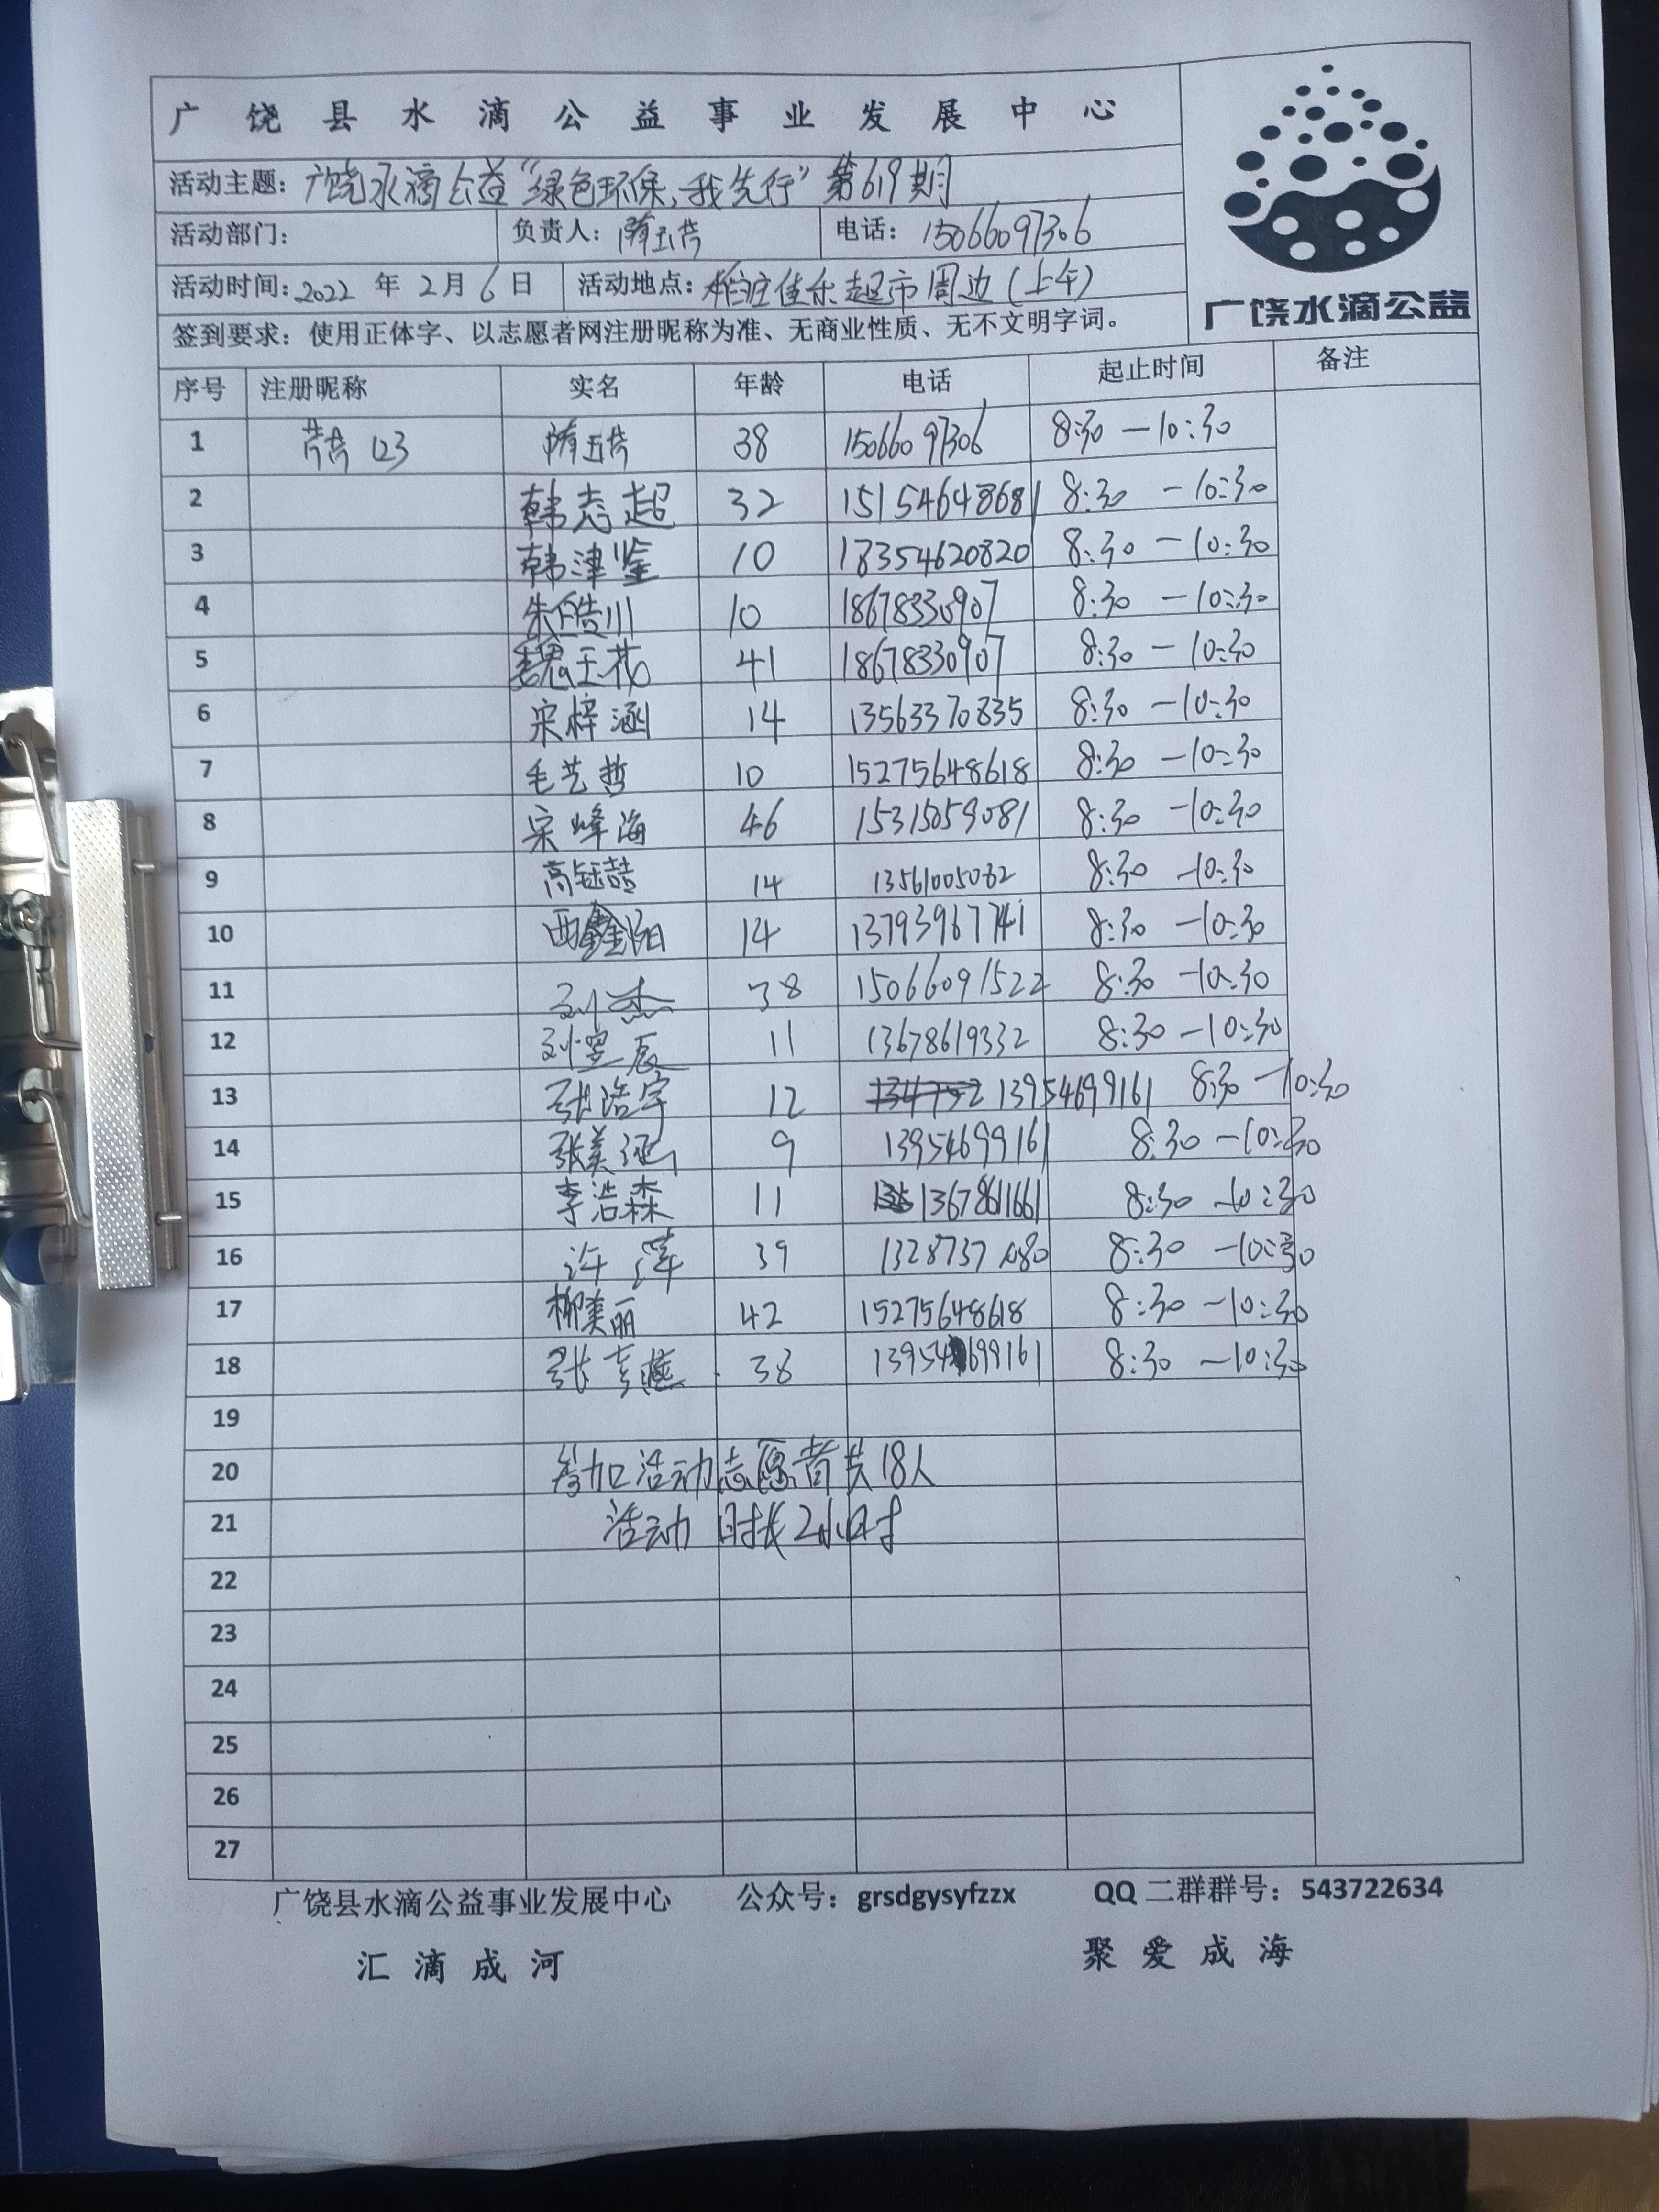 广饶县水滴公益事业发展中心
活动主题：广饶水滴公益“绿色环保，我先行”第619期
活动部门： 负责人：隋玉芹 电话：15066097306
活动时间：2022年2月6日 活动地点：佳乐超市周边（上午）
广饶水滴公益
签到要求：使用正体字、以志愿者网注册昵称为准、无商业性质、无不文明字词。
序号 注册昵称 实名 年龄 电话 起止时间 备注
1 123 38 15066097306 8:30 — 10:30
2 韩志超 32 15154648681 8:30 — 10:30
3 韩津鉴 10 18354620820 8:30 — 10:30
4 朱皓川 10 18678330907 8:30 — 10:30
5 魏玉花 41 18678330907 8:30 — 10:30
6 宋梓涵 14 13563370835 8:30 — 10:30
7 毛艺哲 10 15275648618 8:30 — 10:30
8 宋峰海 46 15315059081 8:30 — 10:30
9 高钰喆 14 13561005062 8:30 — 10:30
10 西鑫阳 14 13793967741 8:30 — 10:30
11 刘杰 38 15066091522 8:30 — 10:30
12 刘昱辰 11 13678619332 8:30 — 10:30
13 张浩宇 12 13954699161 8:30 — 10:30
14 张美涵 9 13954699161 8:30 — 10:30
15 李浩森 11 13678611661 8:30 — 10:30
16 许萍 39 8:30 — 10:30
17 柳美丽 42 15275648618 8:30 — 10:30
18 张吉燕 38 13954699161 8:30 — 10:30
19
20 参加活动志愿者共18人
21 活动时长2小时
22
23
24
25
26
27
广饶县水滴公益事业发展中心 公众号：grsdgysyfzzx QQ二群群号：543722634
汇滴成河 聚爱成海